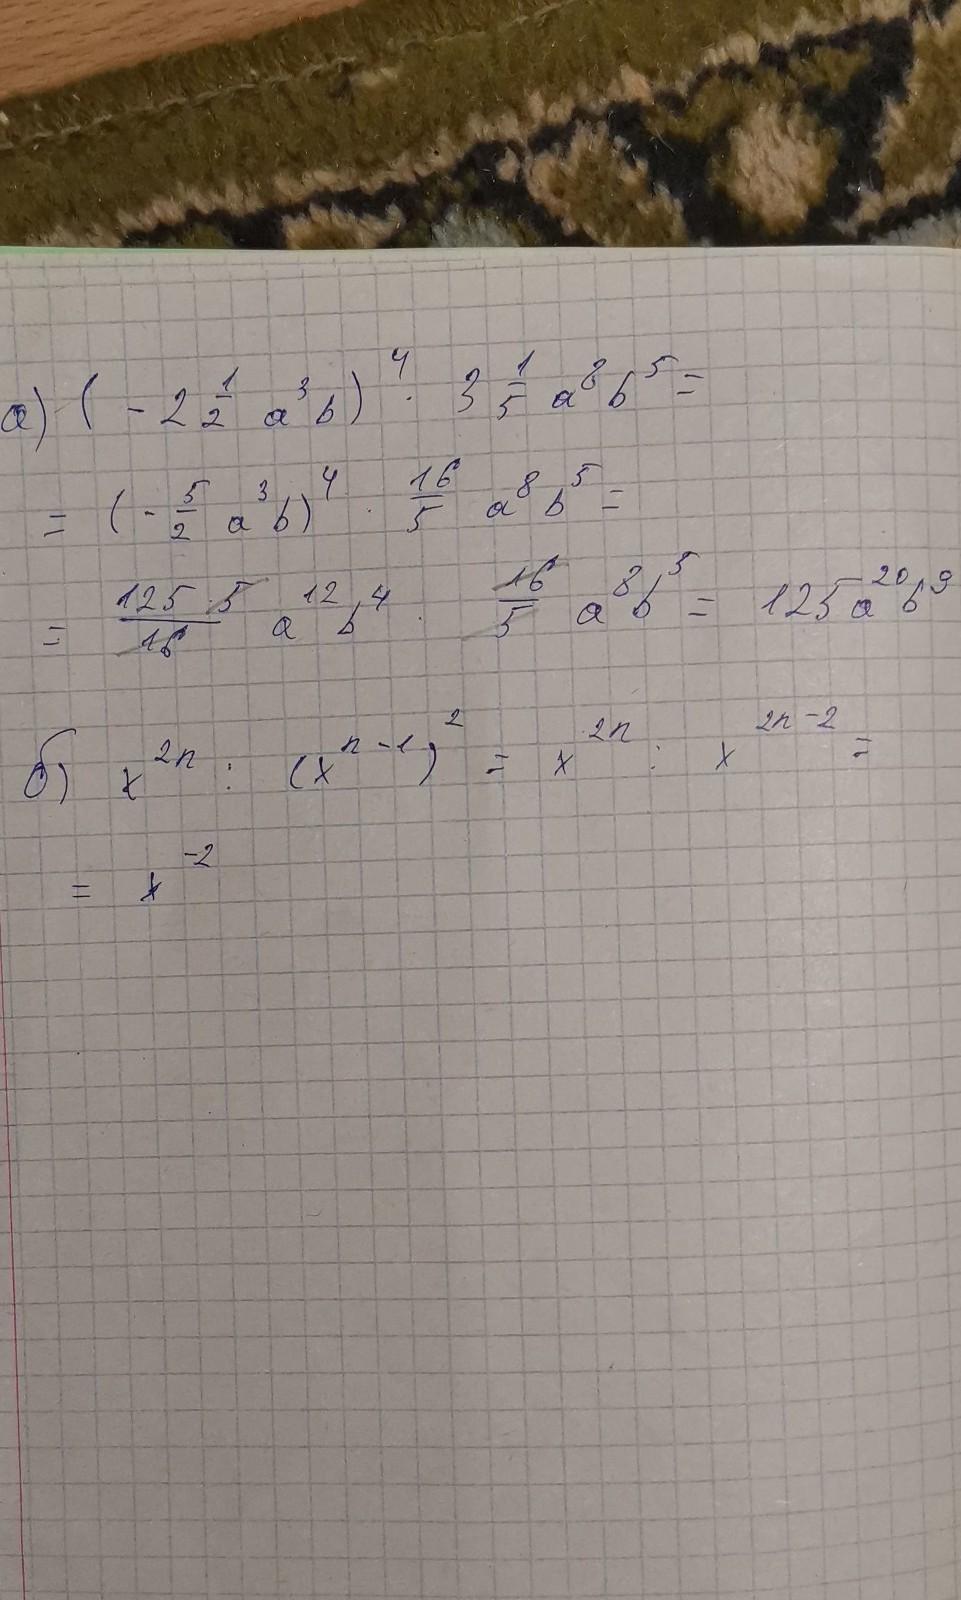 а) (-2 1/2 a³b)⁴ · 3 1/5 a⁸b⁵ =
= (-5/2 a³b)⁴ · 16/5 a⁸b⁵ =
= 125·5/16 a¹²b⁴ · 16/5 a⁸b⁵ = 125a²⁰b⁹
б) x²ⁿ : (xⁿ⁻¹)² = x²ⁿ : x²ⁿ⁻² =
= x⁻²